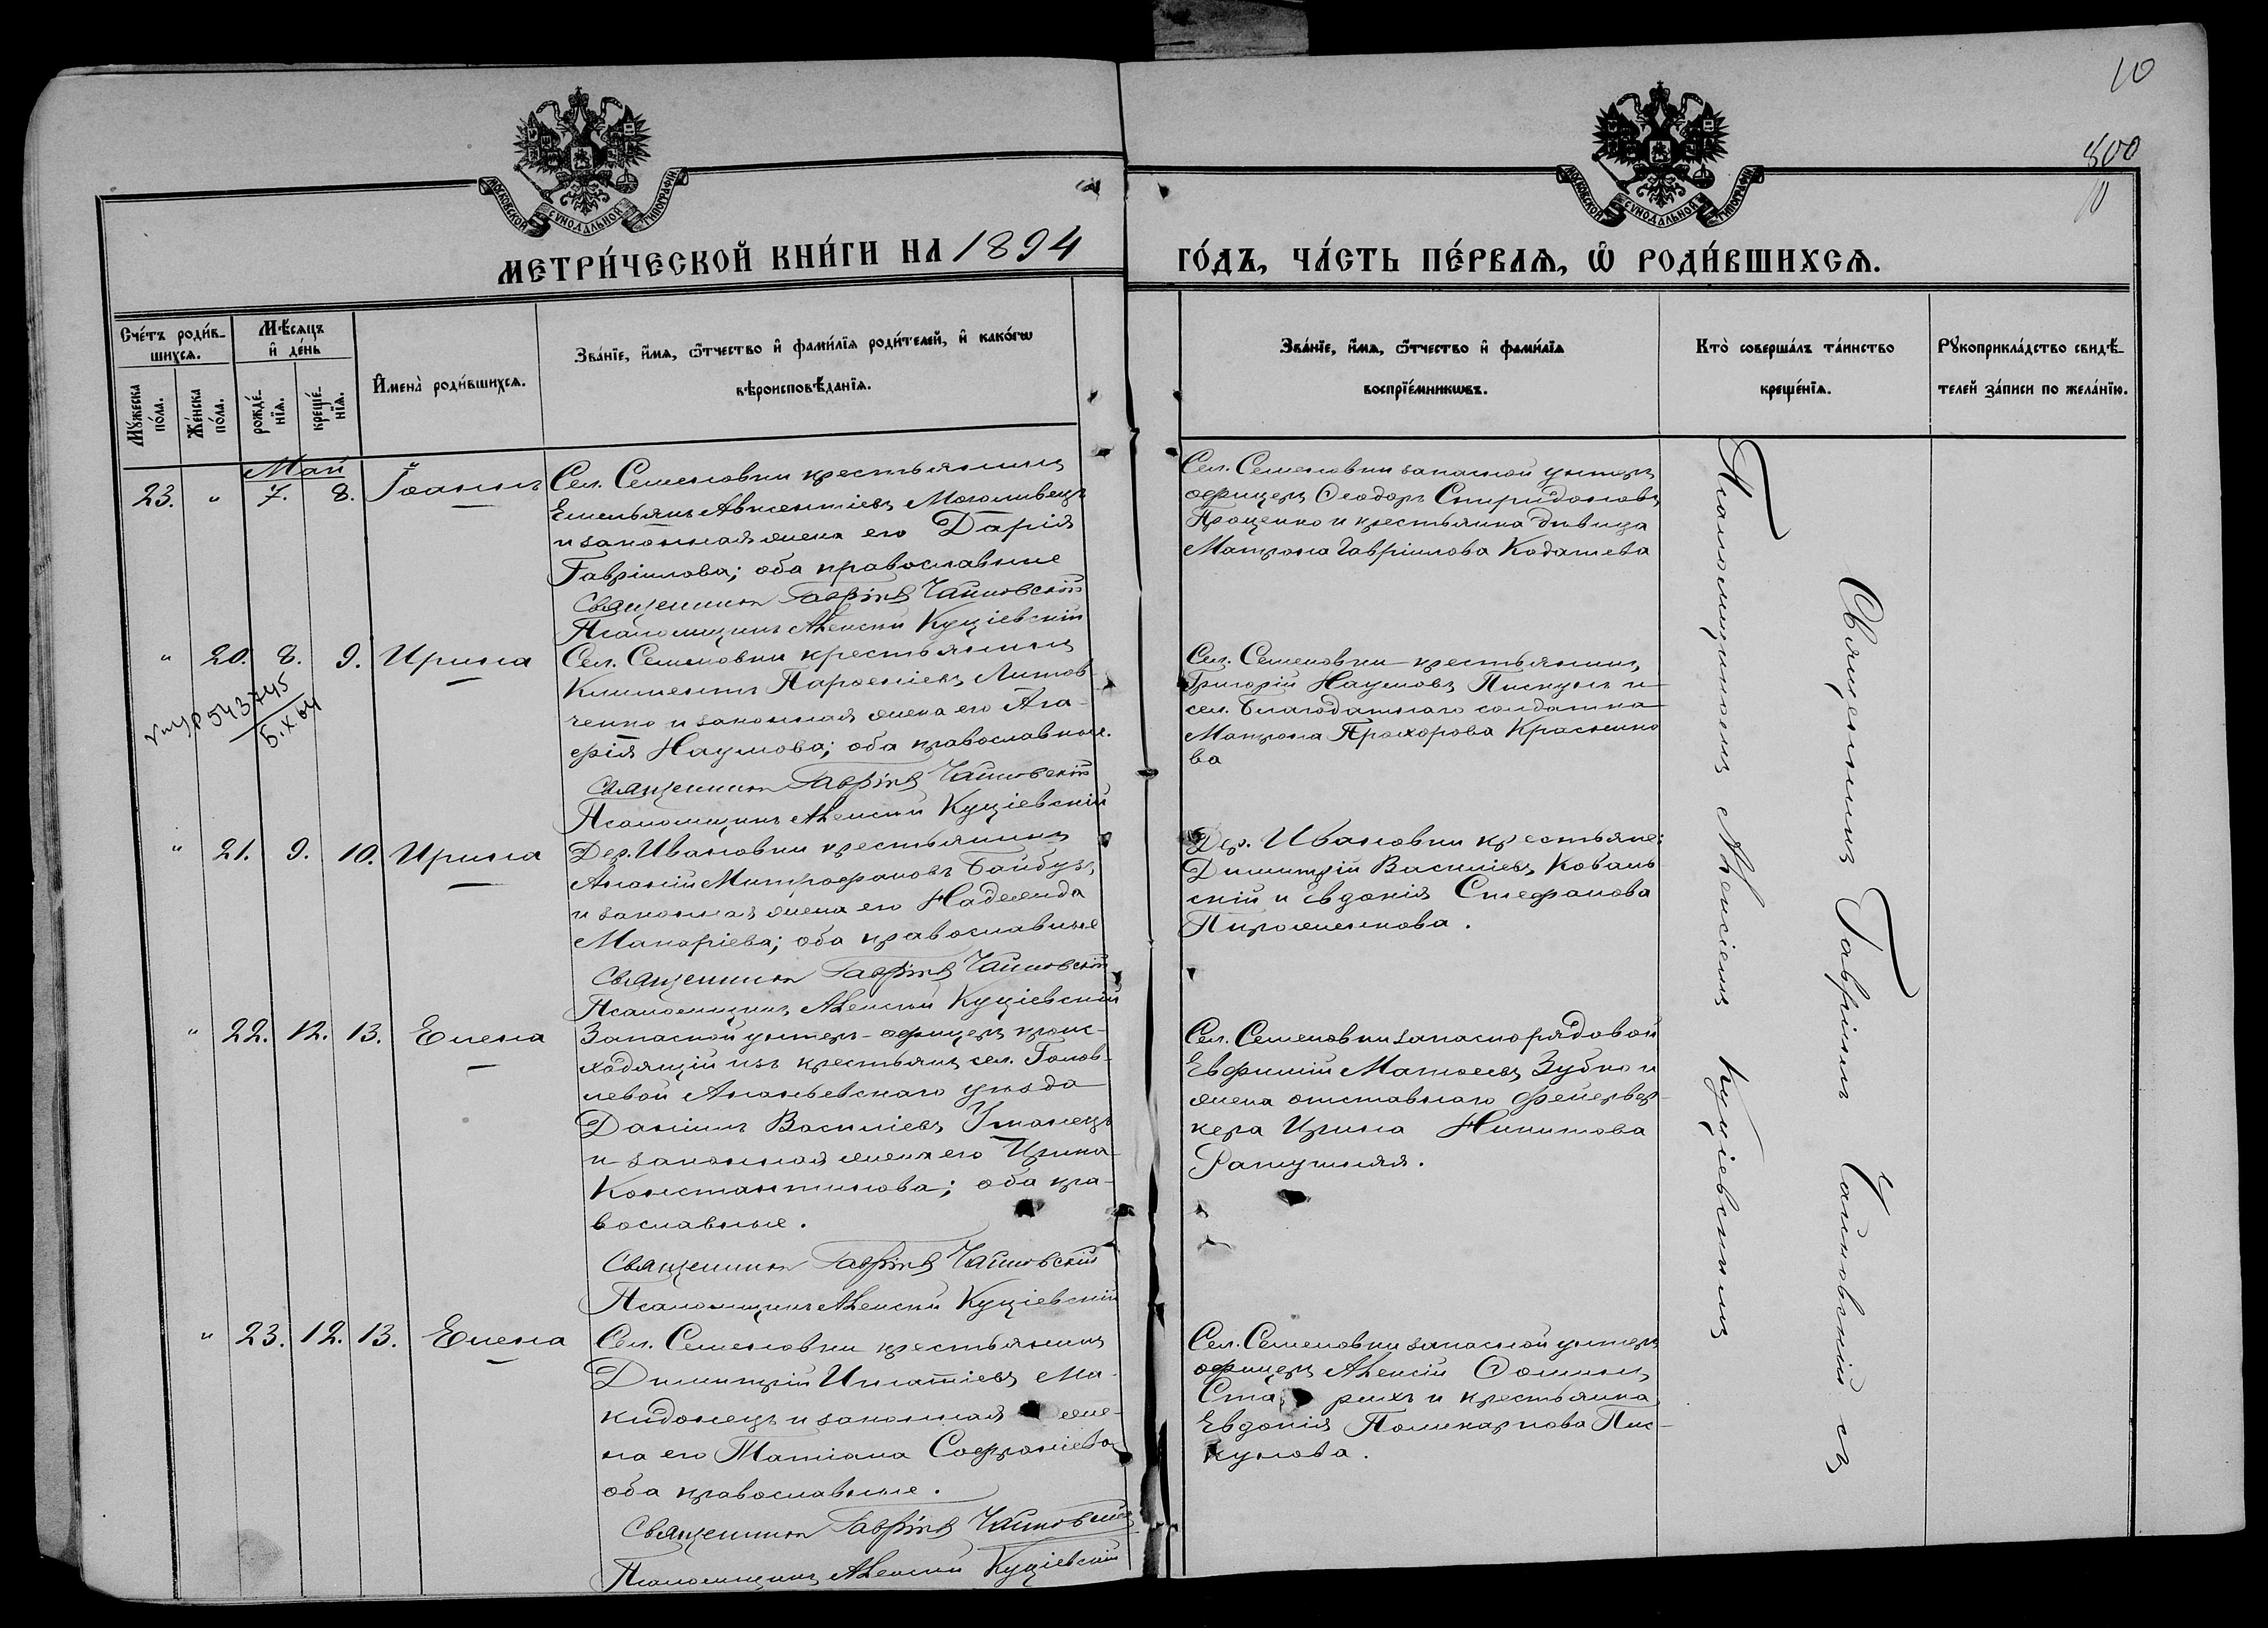 10
800
10
МОСКОВСКОЙ СѴНОДАЛЬНОЙ ТИПОГРАФІИ
МОСКОВСКОЙ СѴНОДАЛЬНОЙ ТИПОГРАФІИ
МЕТРИ́ЧЕСКОЙ КНИ́ГИ НА 1894
ГО́ДЪ, ЧА́СТЬ ПЕ́РВАѦ, Ѡ РОДИ́ВШИХСѦ.
Сче́тъ роди́в-
шихсѧ.
Му́жеска
по́ла.
Же́нска
по́ла.
Мѣ́сѧцъ
и де́нь
рожде́-
нїѧ.
креще́-
нїѧ.
Имена̀ роди́вшихсѧ.
Зва́нїе, и́мѧ, ѻ́тчество и фами́лїѧ роди́телей, и како́гѡ
вѣроисповѣ́данїѧ.
Зва́нїе, и́мѧ, ѻ́тчество и фами́лїѧ
воспрїе́мникѡвъ.
Кто̀ соверша́лъ та́инство
креще́нїѧ.
Рꙋкоприкла́дство свидѣ́-
телей за́писи по жела́нїю.
Май
23. " 7. 8. Іоаннъ
Сел. Семеновки крестьянинъ
Емельянъ Авксентіевъ Моголивецъ
и законная жена его Дарія
Гавріилова; оба православные
Священникъ Гавріилъ Чайковскій
Псаломщикъ Алексій Куціевскій
Сел. Семеновки запасной унтеръ
офицеръ Ѳеодоръ Спиридоновъ
Проценко и крестьянка дѣвица
Матрона Гавріилова Кодатева
" 20. 8. 9. Ирина
543745
5.X.64
Сел. Семеновки крестьянинъ
Климентъ Парѳеніевъ Литов-
ченко и законная жена его Ага-
фія Наумова; оба православные.
Священникъ Гавріилъ Чайковскій
Псаломщикъ Алексій Куціевскій
Сел. Семеновки крестьянинъ
Григорій Наумовъ Пискунъ и
сел. Благодатнаго солдатка
Матрона Прохорова Красенко
ва
" 21. 9. 10. Ирина
Дер. Ивановки крестьянинъ
Ананій Митрофановъ Байбузъ,
и законная жена его Надежда
Макаріева; оба православные
Священникъ Гавріилъ Чайковскій
Псаломщикъ Алексій Куціевскій
Дер. Ивановки крестьяне:
Димитрій Василіевъ Коваль
скій и Евдокія Стефанова
Пироженкова.
" 22. 12. 13. Елена
Запасной унтеръ-офицеръ проис-
ходящій изъ крестьянъ сел. Голов-
левой Ананьевскаго уѣзда
Даніилъ Василіевъ Уманецъ
и законная жена его Ирина
Константинова; оба пра-
вославные.
Священникъ Гавріилъ Чайковскій
Псаломщикъ Алексій Куціевскій
Сел. Семеновки запаснорядовой
Евфимій Матѳеевъ Зубко и
жена отставнаго фейервер-
кера Ирина Никитова
Ратушняя.
" 23. 12. 13. Елена
Сел. Семеновки крестьянинъ
Димитрій Игнатіевъ Ма-
кидонецъ и законная жене-
на его Татіана Софроніева
оба православные.
Священникъ Гавріилъ Чайковскій
Псаломщикъ Алексій Куціевскій
Сел. Семеновки запасной унтеръ
офицеръ Алексій Ѳоминъ
и крестьянка
Евдокія Поликарпова Пис-
кунова.
Священникъ Гавріилъ Чайковскій съ
Псаломщикомъ Алексіемъ Куціевскимъ